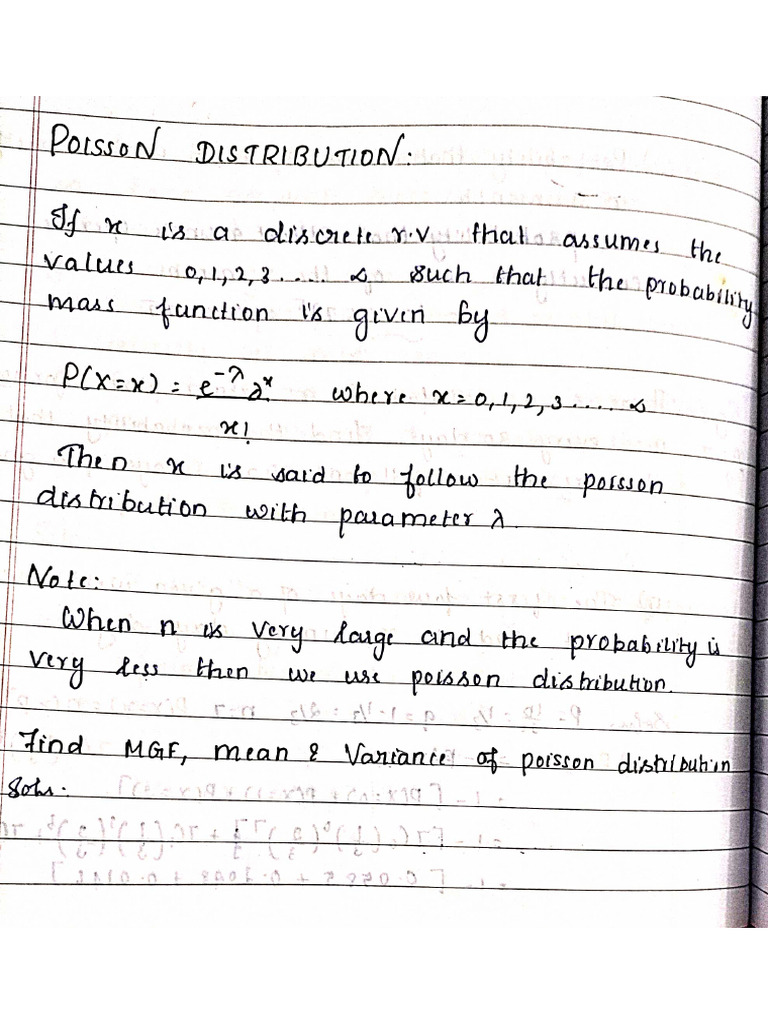 POISSON DISTRIBUTION:
If x is a discrete r.v. that assumes the
values 0,1,2,3..... ∞ such that the probability
mass function is given by
P(X=x) = e^-λ λ^x where x=0,1,2,3..... ∞
x!
Then x is said to follow the poisson
distribution with parameter λ.
Note:
When n is very large and the probability is
very less then we use poisson distribution.
Find MGF, mean & Variance of poisson distribution
Soln.